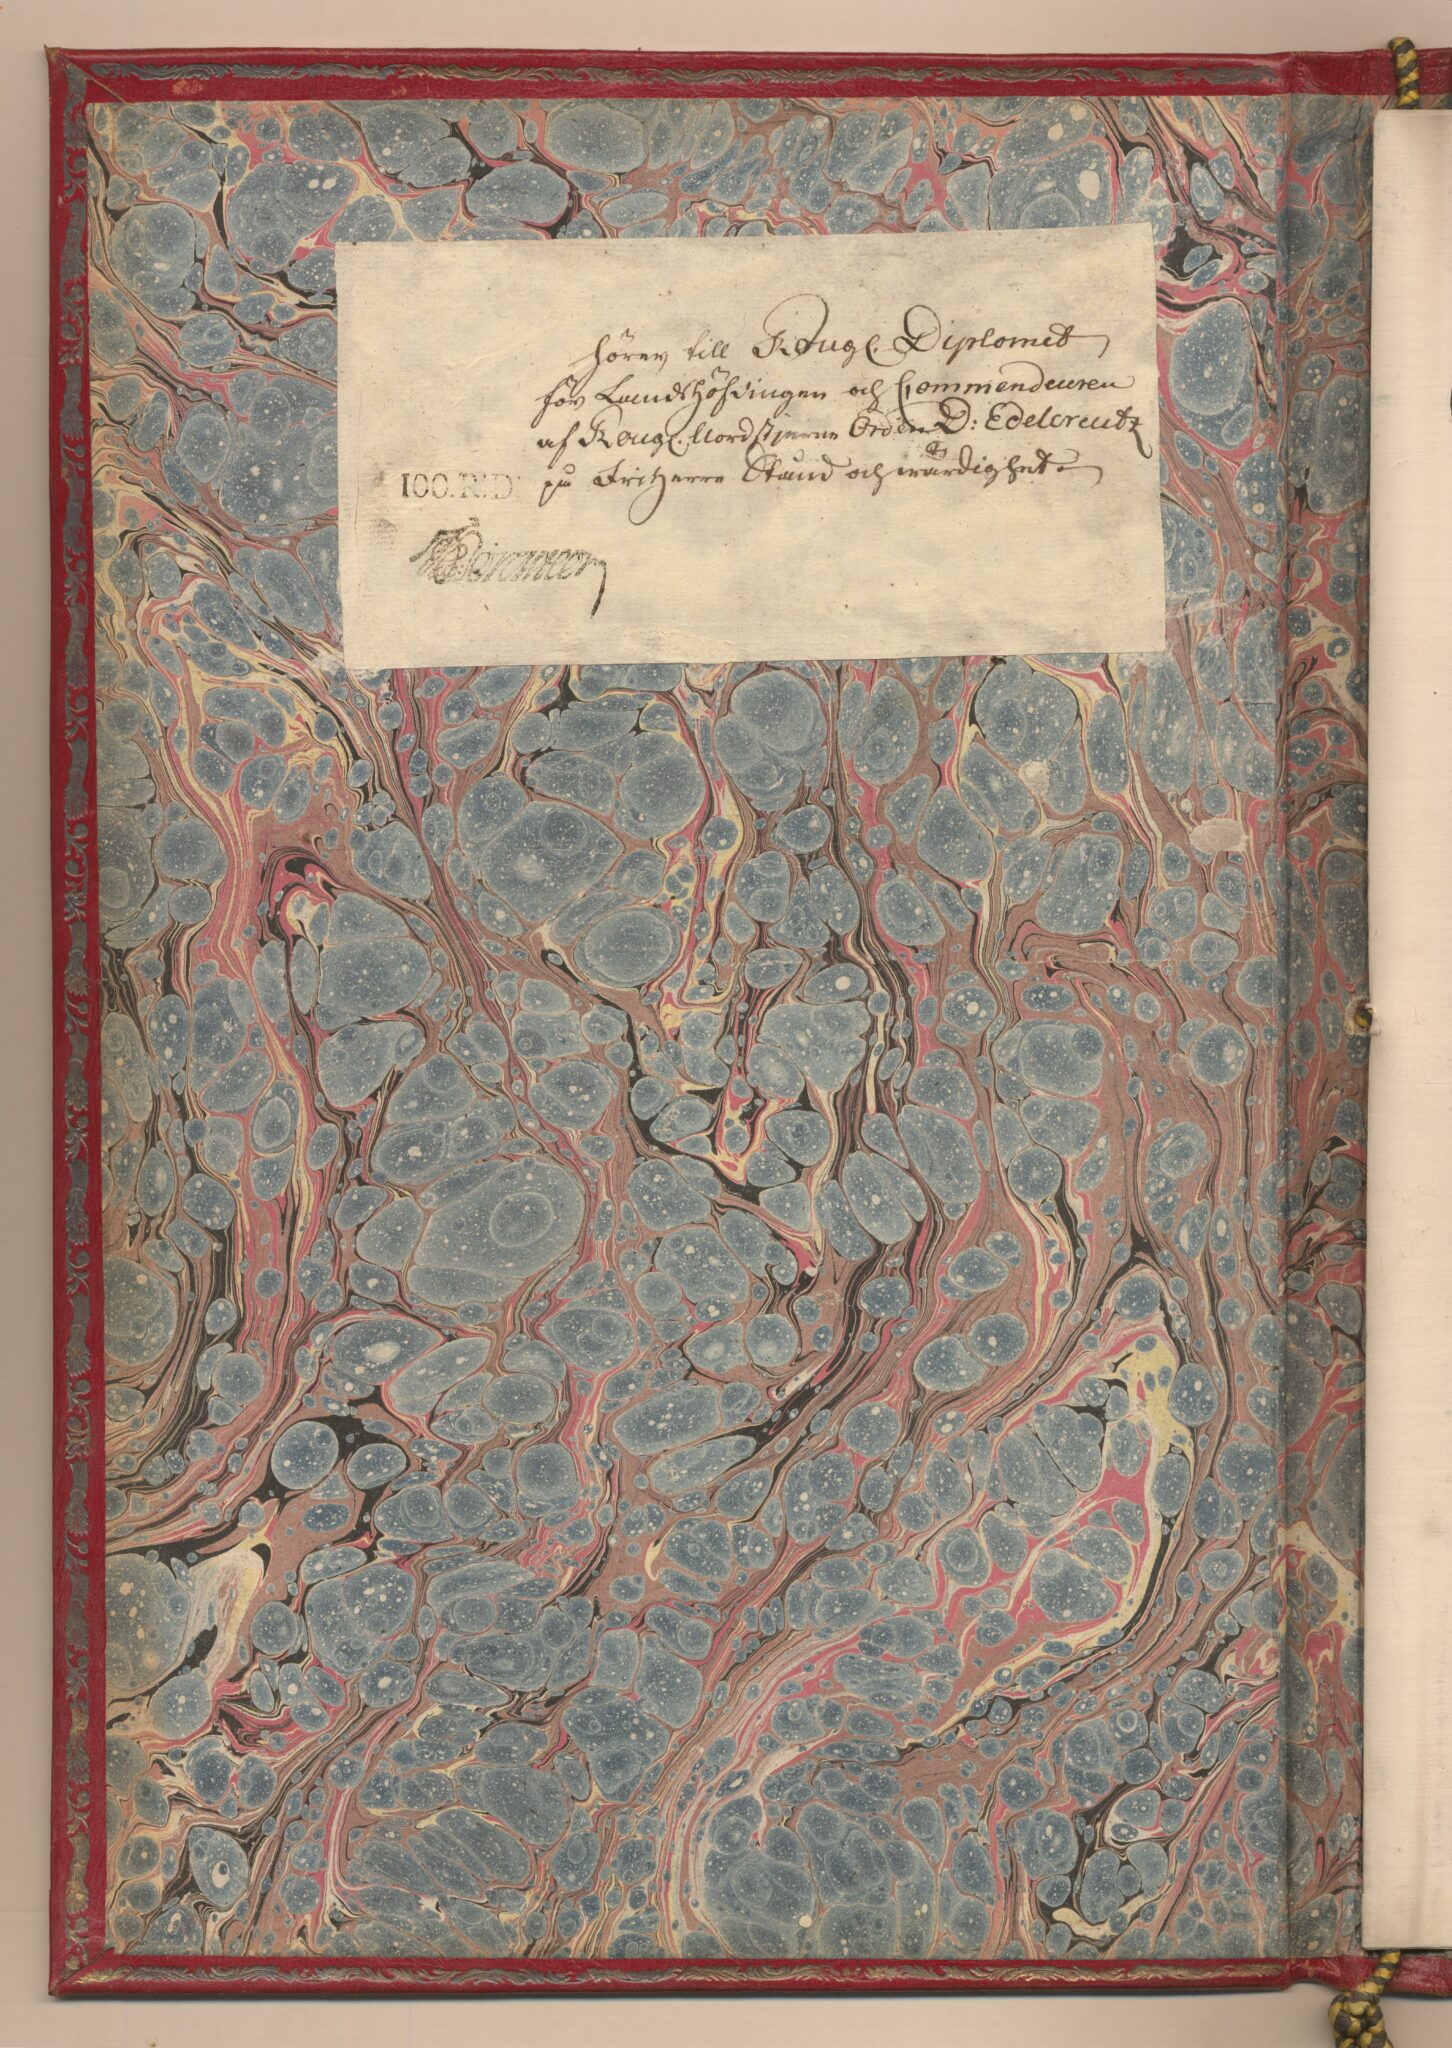 hörer till Kongl. Diplomet
för Landshöfdingen och Commendeuren
af Kongl. Nordstjerne Orden D: Edelcreutz
på Friherre Stånd och wärdighet.
100. R:D: